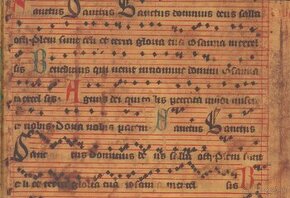 Sanctus Sanctus Sanctus dominus deus saba
oth Pleni sunt celi et terra gloria tua osanna in excel
sis Benedictus qui venit in nomine domini osanna
in excel sis Agnus dei qui tollis peccata mundi miser
e nobis Dona nobis pacem Sanctus Sanctus
Sanctus dominus deus saba oth Pleni sunt
celi et terra gloria tua osanna in excel sis B